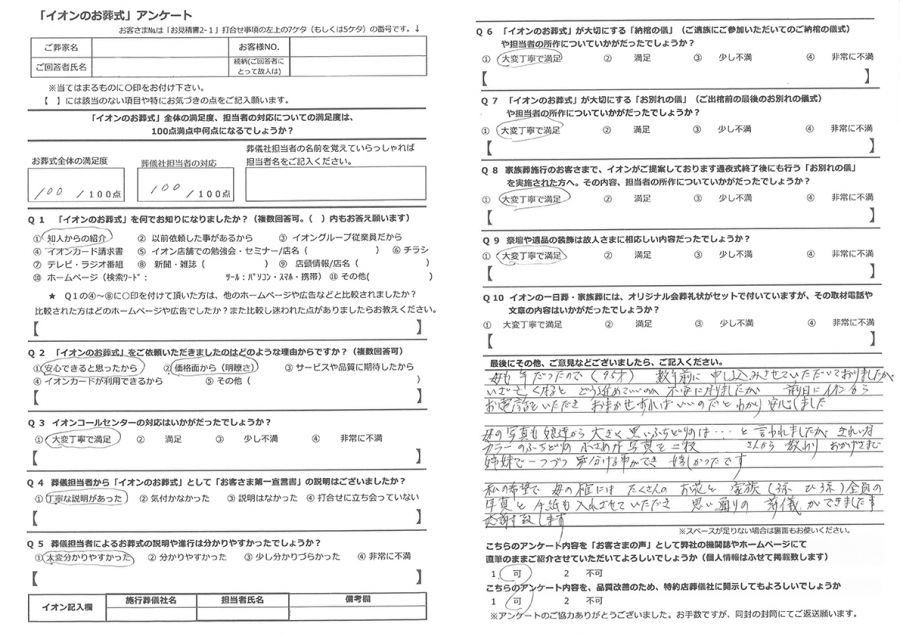 「イオンのお葬式」アンケート
お客さま№は「お見積書2-1」打合せ事項の左上の7ケタ（もしくは5ケタ）の番号です。↓
ご葬家名 お客様NO.
ご回答者氏名 続柄(ご回答者にとって故人は)
※当てはまるものに〇印をお付け下さい。
【　】には該当のない項目や特にお気づきの点をご記入願います。
「イオンのお葬式」全体の満足度、担当者の対応についての満足度は、
100点満点中何点になるでしょうか？
お葬式全体の満足度 葬儀社担当者の対応 葬儀社担当者の名前を覚えていらっしゃれば
担当者名をご記入ください。
100 ／100点 100 ／100点
Q１ 「イオンのお葬式」を何でお知りになりましたか？（複数回答可。（　）内もお答え願います）
① 知人からの紹介 ② 以前依頼した事があるから ③ イオングループ従業員だから
④ イオンカード請求書 ⑤ イオン店舗での勉強会・セミナー/店名（　） ⑥ チラシ
⑦ テレビ・ラジオ番組 ⑧ 新聞・雑誌（　） ⑨ 店頭情報/店名（　）
⑩ ホームページ（検索ﾜｰﾄﾞ： ﾂｰﾙ：ﾊﾟｿｺﾝ・ｽﾏﾎ・携帯） ⑪ その他(　)
★ Q１の④～⑧に〇印を付けて頂いた方は、他のホームページや広告などと比較されましたか？
比較された方はどのホームページや広告でしたか？また比較し迷われた点がありましたらお教えください。
【　】
Q２ 「イオンのお葬式」をご依頼いただきましたのはどのような理由からですか？（複数回答可）
① 安心できると思ったから ② 価格面から（明瞭さ） ③ サービスや品質に期待したから
④ イオンカードが利用できるから ⑤ その他（　）
【　】
Q３ イオンコールセンターの対応はいかがだったでしょうか？
① 大変丁寧で満足 ② 満足 ③ 少し不満 ④ 非常に不満
【　】
Q４ 葬儀担当者から「イオンのお葬式」として「お客さま第一宣言書」の説明はございましたか？
① 丁寧な説明があった ② 気付かなかった ③ 説明はなかった ④ 打合せに立ち会っていない
【　】
Q５ 葬儀担当者によるお葬式の説明や進行は分かりやすかったでしょうか？
① 大変分かりやすかった ② 分かりやすかった ③ 少し分かりづらかった ④ 非常に不満
【　】
イオン記入欄 施行葬儀社名 担当者氏名 備考欄
Q６ 「イオンのお葬式」が大切にする「納棺の儀」（ご遺族にご参加いただいてのご納棺の儀式）
や担当者の所作についていかがだったでしょうか？
① 大変丁寧で満足 ② 満足 ③ 少し不満 ④ 非常に不満
【　】
Q７ 「イオンのお葬式」が大切にする「お別れの儀」（ご出棺前の最後のお別れの儀式）
や担当者の所作についていかがだったでしょうか？
① 大変丁寧で満足 ② 満足 ③ 少し不満 ④ 非常に不満
【　】
Q８ 家族葬施行のお客さまで、イオンがご提案しております通夜式終了後にも行う「お別れの儀」
を実施された方へ。その内容、担当者の所作についていかがだったでしょうか？
① 大変丁寧で満足 ② 満足 ③ 少し不満 ④ 非常に不満
【　】
Q９ 祭壇や遺品の装飾は故人さまに相応しい内容だったでしょうか？
① 大変丁寧で満足 ② 満足 ③ 少し不満 ④ 非常に不満
【　】
Q１０ イオンの一日葬・家族葬には、オリジナル会葬礼状がセットで付いていますが、その取材電話や
文章の内容はいかがだったでしょうか？
① 大変丁寧で満足 ② 満足 ③ 少し不満 ④ 非常に不満
【　】
最後にその他、ご意見などございましたら、ご記入ください。
母も年だったので（95才） 数年前に申し込みさせていただいておりましたが
いざ亡くなると どう進めていいのか 不安になりましたが 前日にイオンから
お電話をいただき おまかせすればいいのだとわかり 安心しました
母の写真も娘達から 大きく黒いふちどりは・・・と言われましたが きれいな
カラーのふちどりの 小さめな写真を三枚 さんから 教わり おかげさまで
姉妹で一つづつ 受け分ける事ができ 嬉しかったです
私の希望で 母の棺には たくさんのお花と 家族（孫 ひ孫）全員の
写真と手紙も入れさせていただき 思い通りの 葬儀ができました事
感謝致します
※スペースが足りない場合は裏面もお使いください。
こちらのアンケート内容を「お客さまの声」として弊社の機関誌やホームページにて
直筆のままご紹介させていただいてよろしいでしょうか（個人情報はふせて掲載致します）
1 可 2 不可
こちらのアンケート内容を、品質改善のため、特約店葬儀社に開示してもよろしいでしょうか
1 可 2 不可
※アンケートのご協力ありがとうございました。お手数ですが、同封の封筒にてご返送願います。